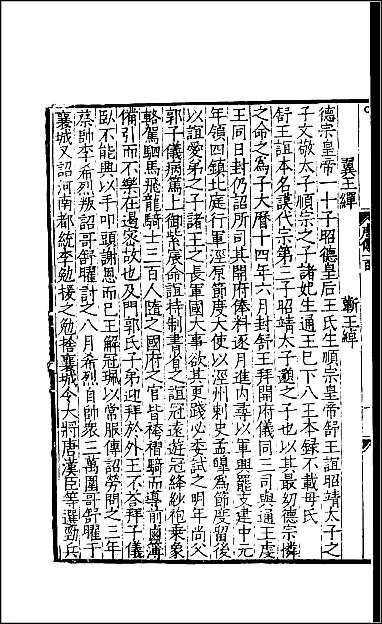 翼王繟　蘄王緷
德宗皇帝一十子昭德皇后王氏生順宗皇帝舒王誼昭靖太子之
子文敬太子順宗之子諸妃生通王已下八王本録不載母氏
舒王誼本名謨代宗第三子昭靖太子邈之子也以其最幼德宗憐
之命之爲子大曆十四年六月封舒王拜開府儀同三司與通王虔
王同日封仍詔所司其開府俸料逐月進内尋以軍興罷支建中元
年領四鎮北庭行軍涇原節度大使以涇州刺史孟皥爲節度留後
以誼愛弟之子諸王之長軍國大事欲其更踐必委試之明年尚父
郭子儀病篤上御紫宸命誼持制書省之誼冠遠遊冠絳紗袍乗象
輅駕駟馬飛龍騎士三百人隨之國府之官皆袴褶騎而導前鹵簿
備引而不樂在遏宻故也及門郭氏子弟迎拜於外王不答拜子儀
卧不能興以手叩頭謝恩而已王解冠珮以常服傳詔勞問之三年
蔡帥李希烈叛詔哥舒曜討之八月希烈自帥衆三萬圍哥舒曜于
襄城又詔河南都統李勉援之勉捨襄城令大將唐漢臣等選勁兵